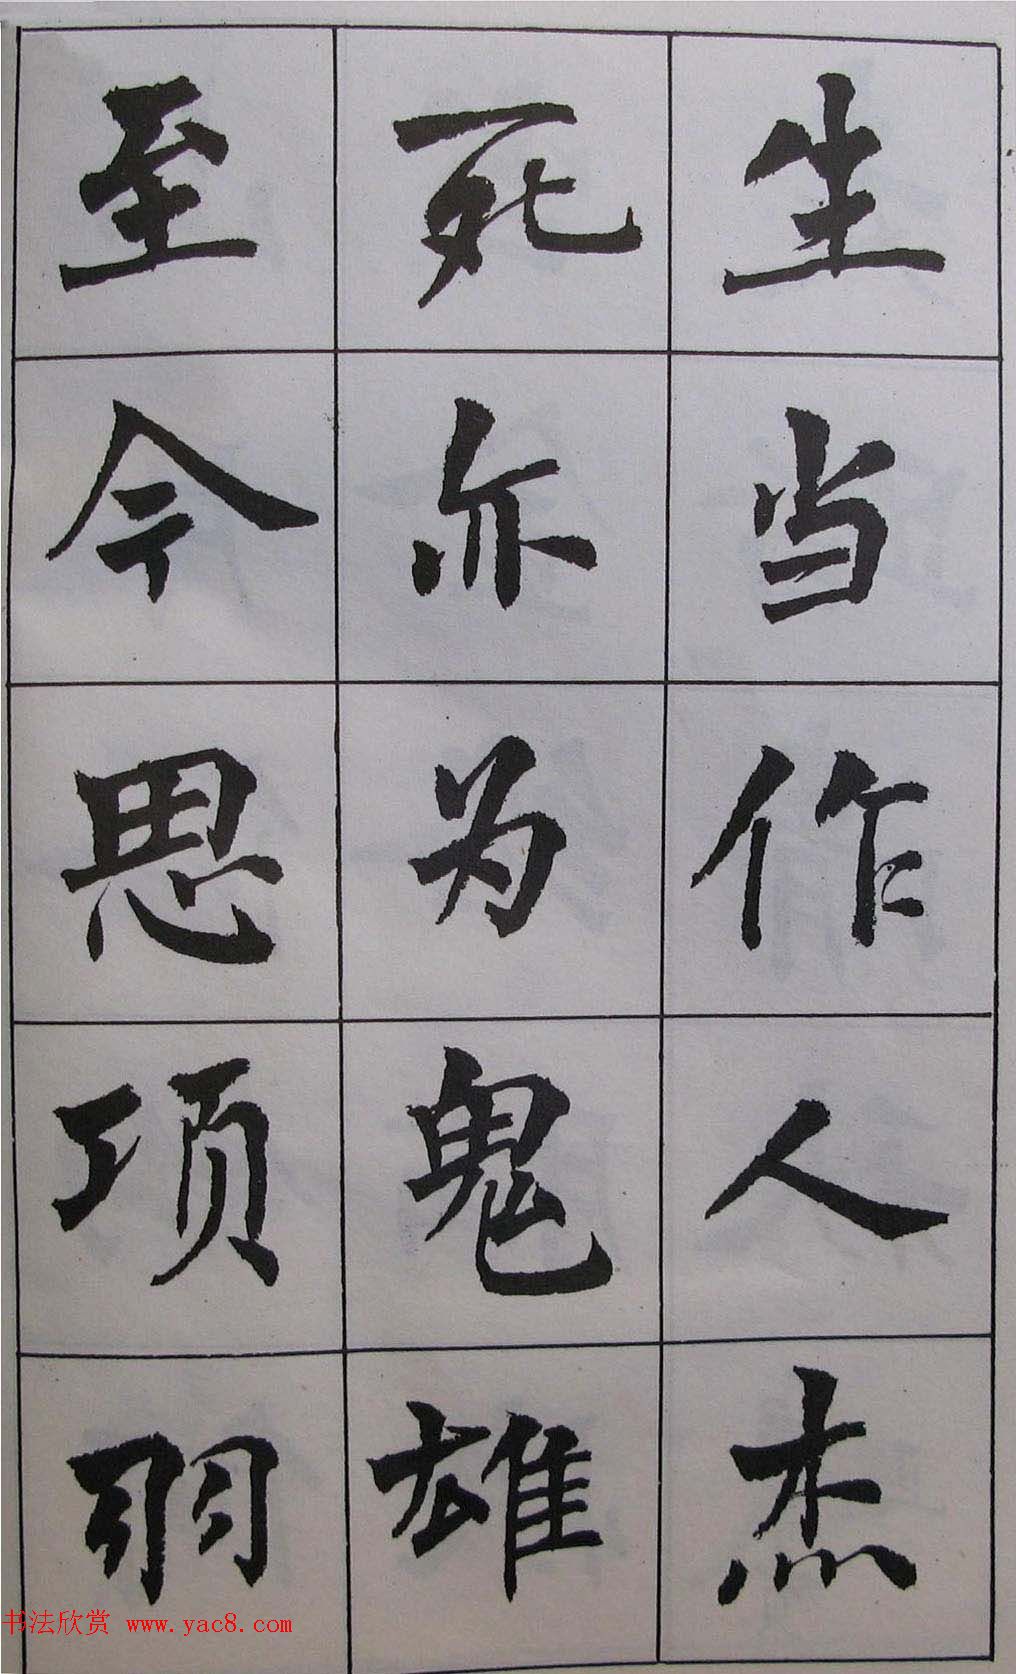 生当作人杰
死亦为鬼雄
至今思项羽
书法欣赏 www.yac8.com